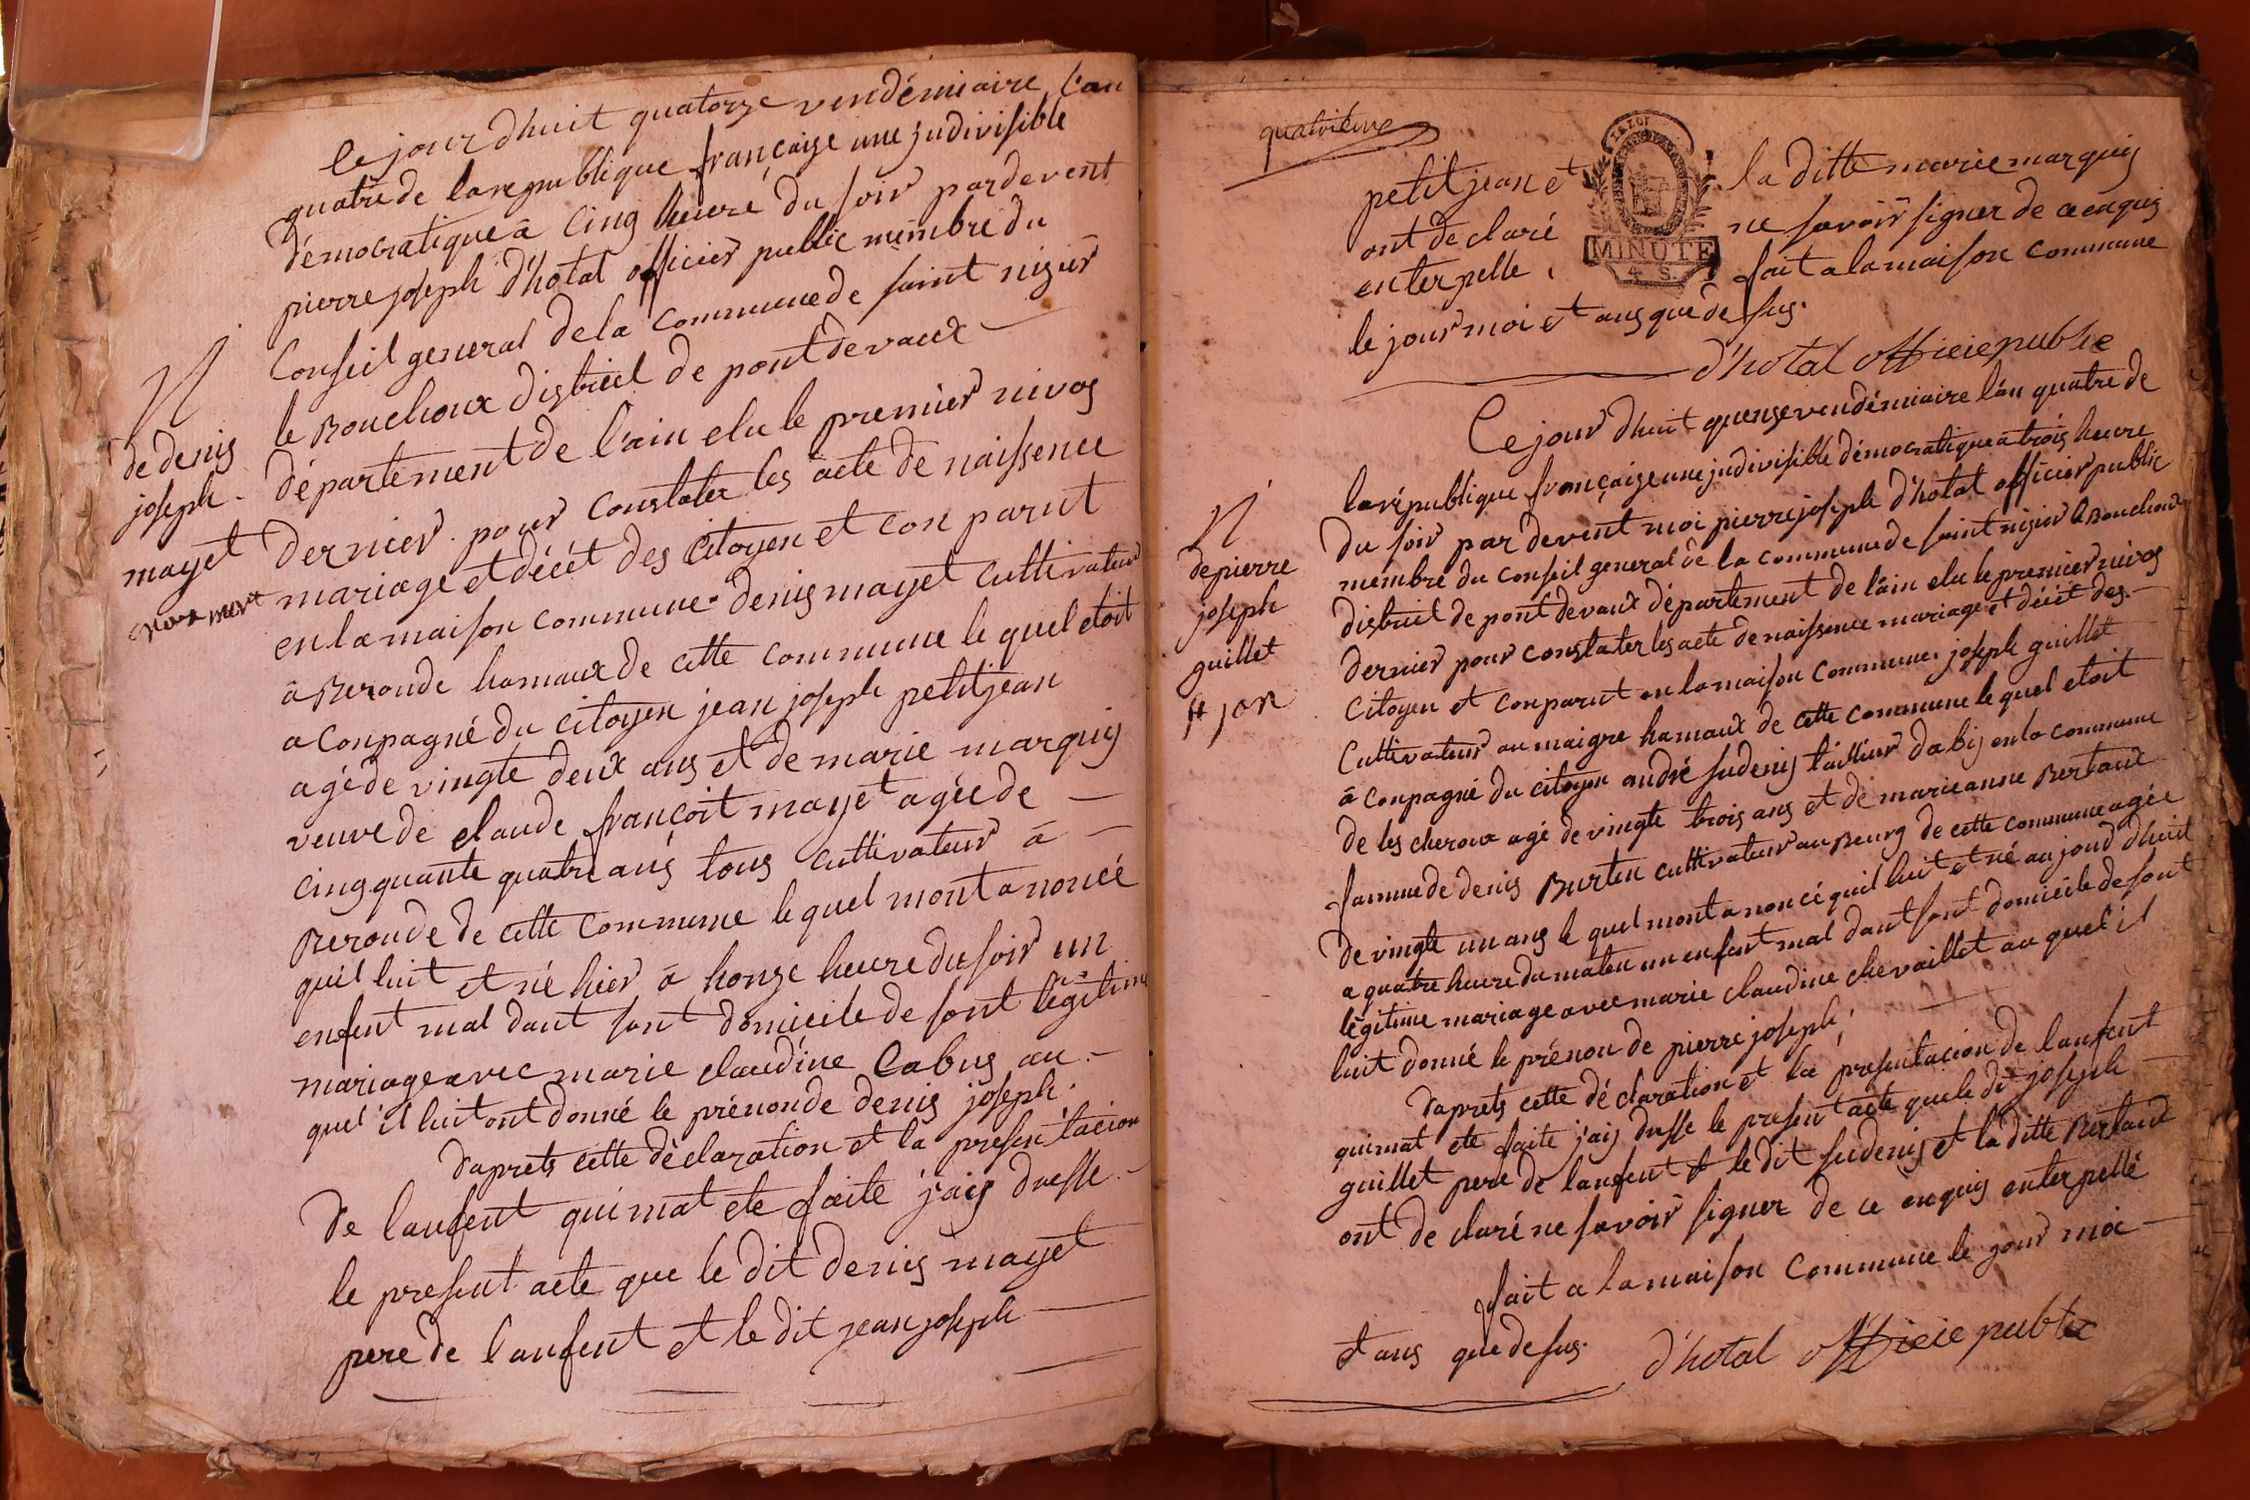 Ce jour dhuit quatorze vendémiaire l'an
quatre de la republique françaize une judivisible
démocratique à cinq heure du soir pardevent
pierre joseph d'hotal officier public membre du
Conseil general de la commune de saint nizier
le Bouchoux distriel de pont de vaux
département de l'ain elu le premier nivos
dernier pour constater les acte de naissence
mariage et décét des citoyen et con parut
en la maison commune denis mayet cultivateur
à Beronde hamaux de cette commune le quel etoit
a conpagné du citoyen jean joseph petitjean
agé de vingte deux ans et de marie marquis
veuve de claude françoit mayet agée de
cinqquante quatre ans tous cultivateur à
Beronde de cette commune le quel mont a noncé
quil luit et né hier à honze heure du soir un
enfent mal dant sont domicile de sont légitime
mariage avec marie claudine Cabus au
quel il luit ont donné le prénon de denis joseph.
daprets cette déclaration et la presentacion
de lanfent qui mat ete faite j'ais dresse
le present acte que le dit denis mayet
pere de lanfent et le dit jean joseph
N.
de denis
joseph
mayet
mort
quatrieme
LA LOI
MINUTE
4 S.
petitjean et la ditte marie marquis
ont declaré ne savoir signer de ce enquis
enterpelle, fait a la maison commune
le jour moi et ans que desus.
d'hotal officie public
Ce jour dhuit quense vendémiaire l'an quatre de
la république françaize une judivisible démocratique à trois heure
du soir par devent moi pierre joseph d'hotal officier public
membre du conseil general de la commune de saint nizier le Bouchoux
distriel de pont de vaux département de l'ain elu le premier nivos
dernier pour constater les acte de naissence mariage et décét des
citoyen et conparut en la maison commune joseph guillet
cultivateur au maigre hamaux de cette commune le quel etoit
à conpagné du citoyen andré sudenis tailleur dabis en la commune
de les cheroux agé de vingte trois ans et de marieanne Bertaux
famme de denis Burtin cultivateur au Beurg de cette commune agée
de vingte un ans le quel mont a noncé quil luit et né au jourd dhuit
a quatre heure du maten un enfent mal dant sont domicile de sont
légitime mariage avec marie claudine chevaillet au quel il
luit donné le prénon de pierre joseph.
daprets cette déclaration et la presentacion de lanfent
qui mat ete faite j'ais dresse le present acte que le dit joseph
guillet pere de lanfent et le dit sudenis et la ditte Bertaux
ont de claré ne savoir signer de ce enquis enterpellé
fait a la maison commune le jour moi
et ans que desus. d'hotal officie public
N.
de pierre
joseph
guillet